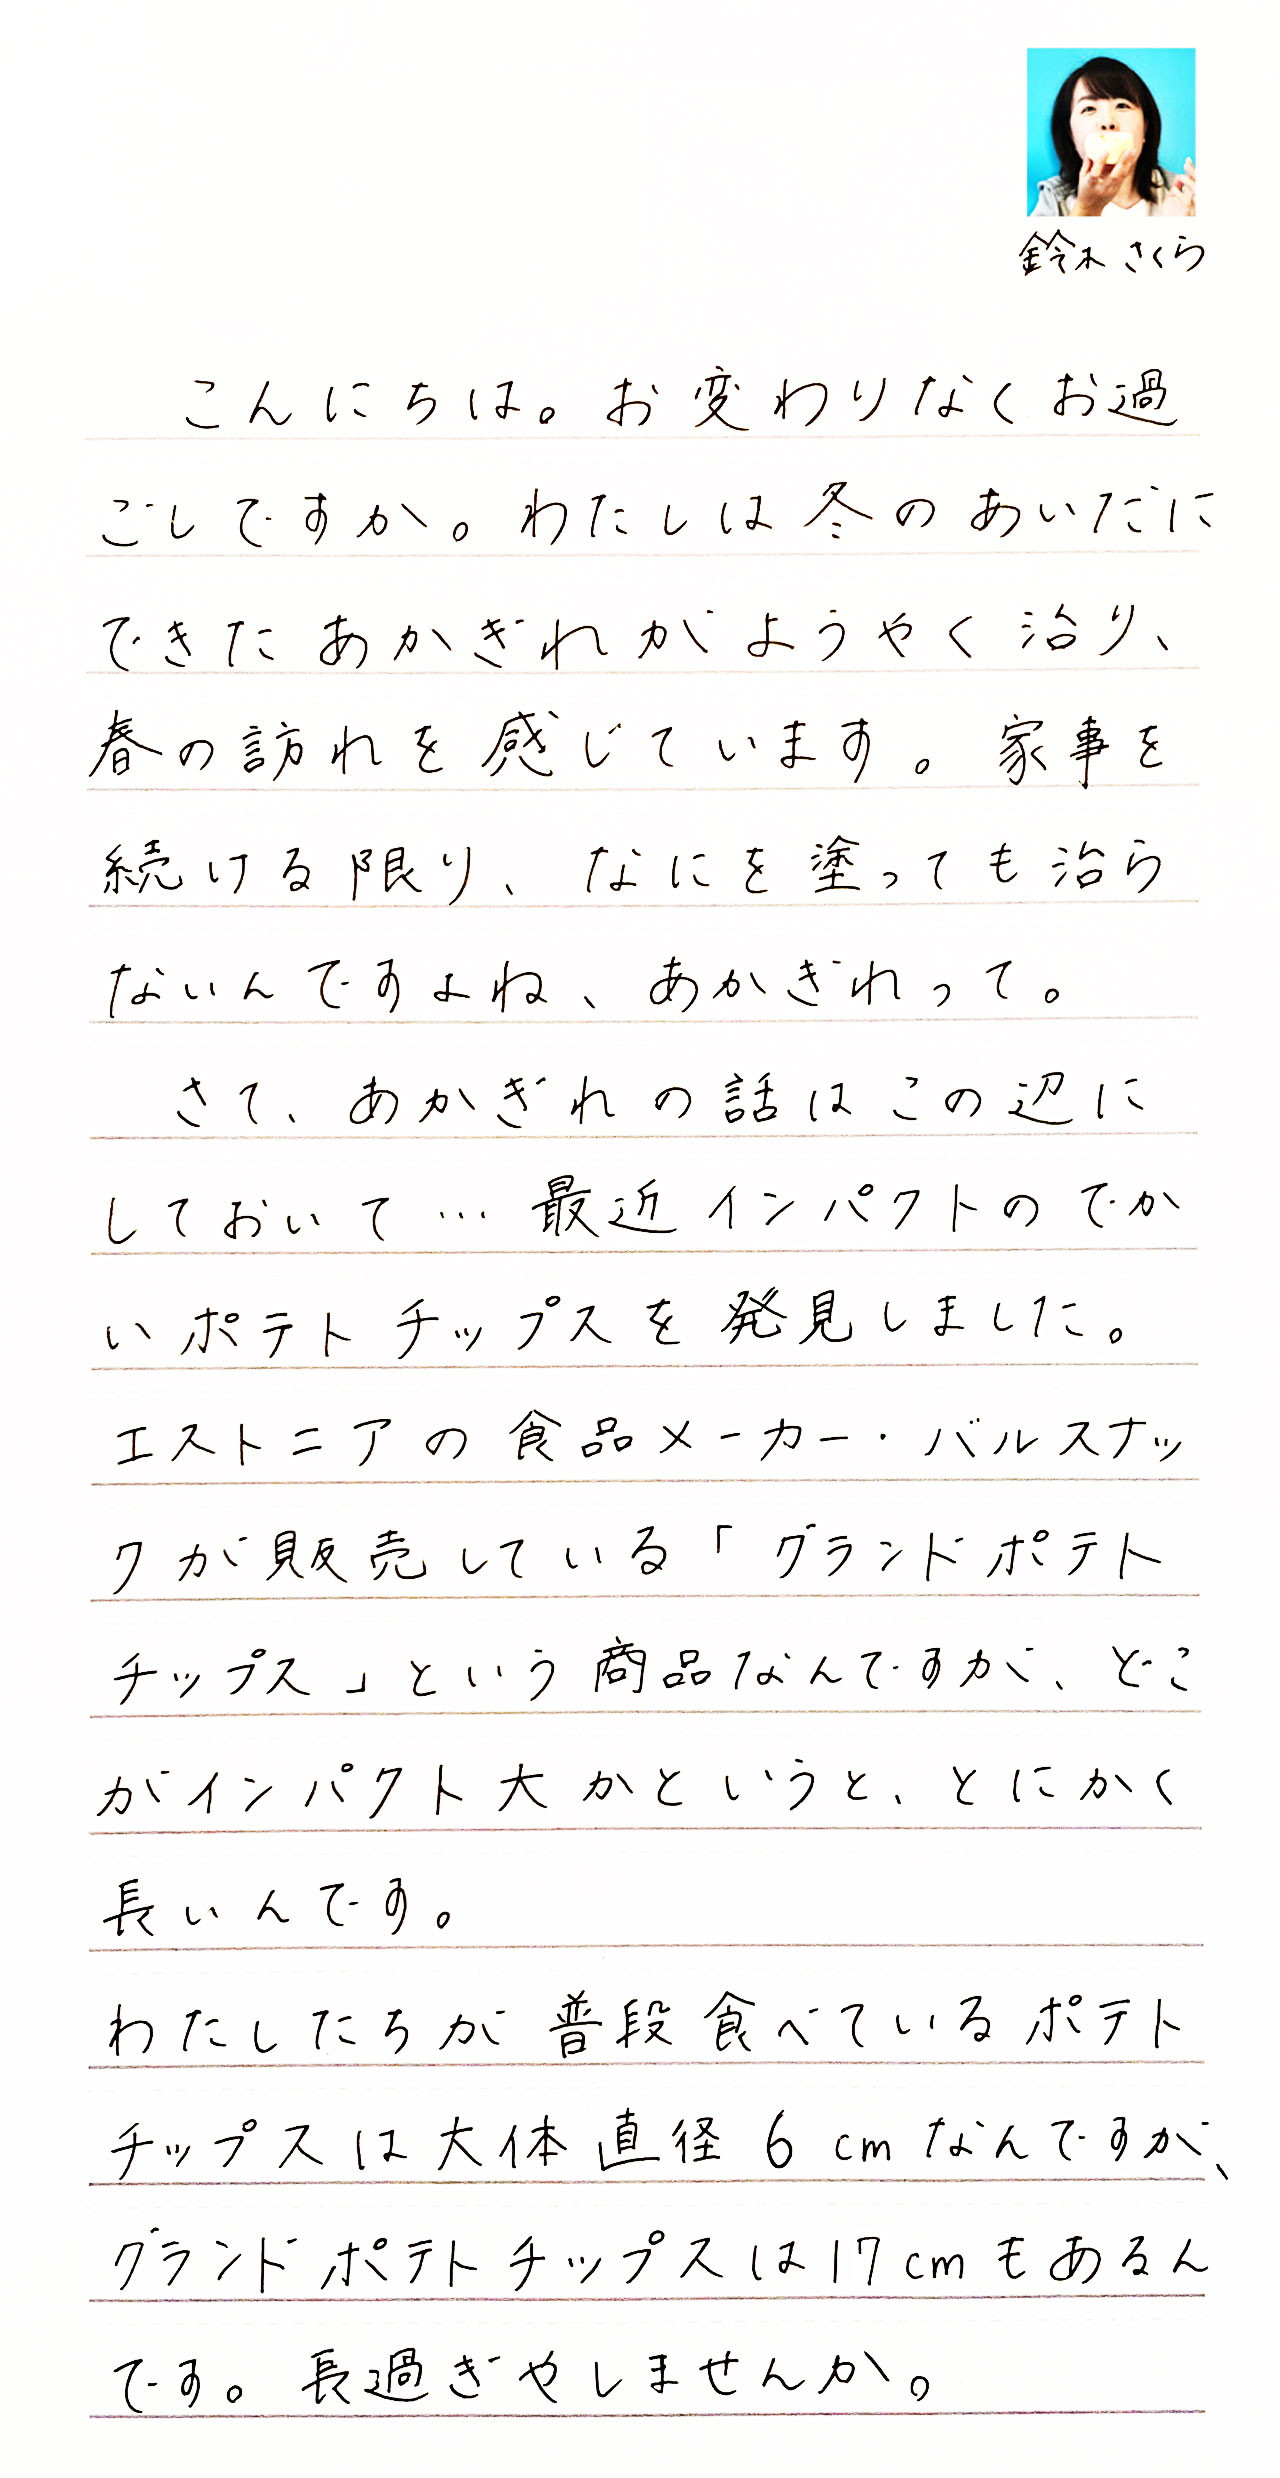 鈴木さくら
こんにちは。お変わりなくお過
ごしですか。わたしは冬のあいだに
できたあかぎれがようやく治り、
春の訪れを感じています。家事を
続ける限り、なにを塗っても治ら
ないんですよね、あかぎれって。
さて、あかぎれの話はこの辺に
しておいて…最近インパクトのでか
いポテトチップスを発見しました。
エストニアの食品メーカー・バルスナッ
クが販売している「グランドポテト
チップス」という商品なんですが、どこ
がインパクト大かというと、とにかく
長いんです。
わたしたちが普段食べているポテト
チップスは大体直径6cmなんですが、
グランドポテトチップスは17cmもあるん
です。長過ぎやしませんか。